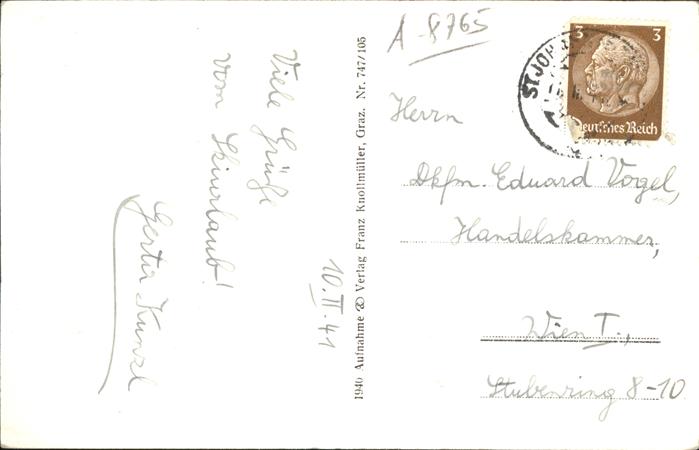 Viele Grüße
vom Skiurlaub!
Gerta Kunzl
10.II.41
1940 Aufnahme Verlag Franz Knollmüller, Graz. Nr. 747/105
A-8765
ST JOH
3 3
Deutsches Reich
Herrn
Dkfm. Eduard Vogel,
Handelskammer,
Wien I.,
Stubenring 8-10